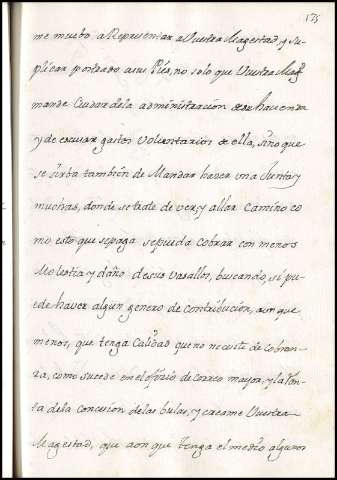 175
me muebo a Representar a Vuestra Magestad, y Su
plicar postrado a sus Pies, no solo que Vuestra Magd
mande Cuidar de la administracion de su hacienda
y de escusar gastos Voluntarios de ella, sino que
se sirba tambien de Mandar hacer una Junta y
muchas, donde se trate de ver, y allar Camino co
mo esto que se paga se pueda Cobrar con menos
Molestia y daño de sus Vasallos, buscando, si pu
ede haver algun genero de Contribucion, aun que
menos, que tenga Calidad que no necesite de Cobran
za, como sucede en el oficio de Correo mayor, y la Ren
ta de la Concesion de las bulas, y creame Vuestra
Magestad, que aon que tenga el medio algunos